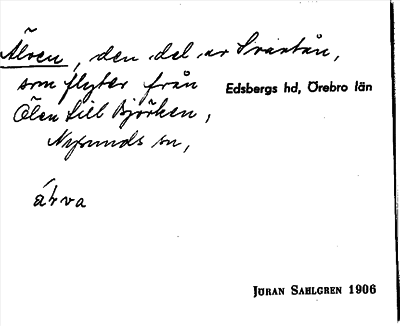 Älven, den del av Svartån,
som flyter från
Edsbergs hd, Örebro län
Ölen till Björken,
Nysunds sn,
álva
JÖRAN SAHLGREN 1906